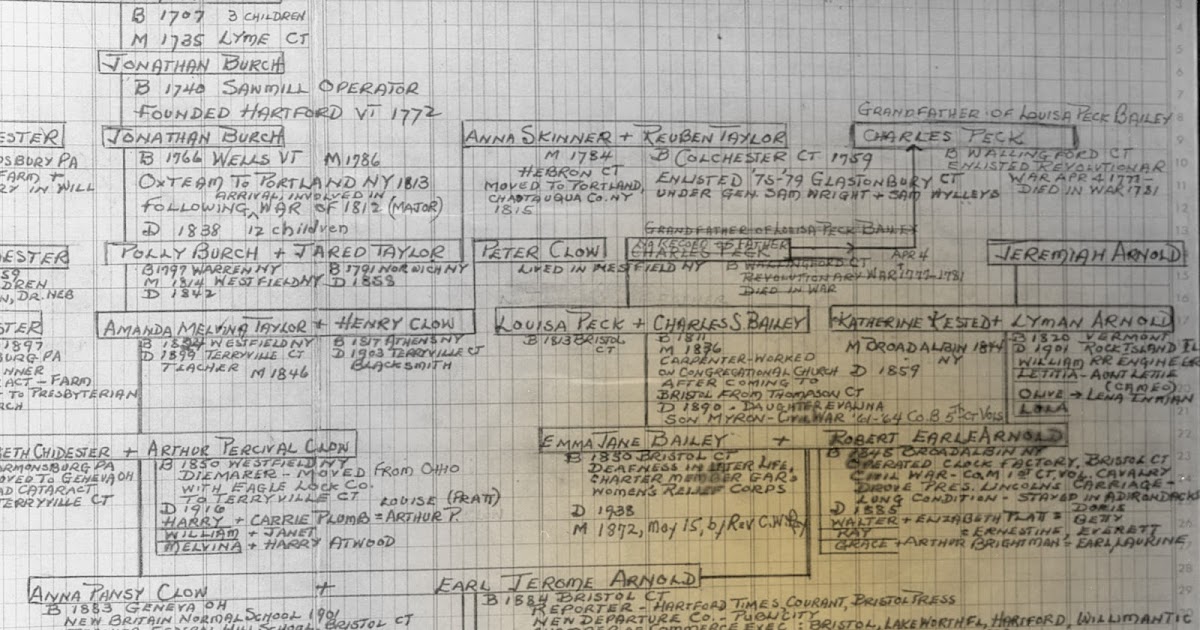 B 1707 3 CHILDREN
M 1735 LYME CT
JONATHAN BURCH
B 1740 SAWMILL OPERATOR
FOUNDED HARTFORD VT 1772
GRANDFATHER OF LOUISA PECK BAILEY
ESTER
JONATHAN BURCH
ANNA SKINNER + REUBEN TAYLOR
CHARLES PECK
SBURY PA
FARM +
RY IN WILL
B 1766 WELLS VT M 1786
OXTEAM TO PORTLAND NY 1813
ARRIVAL, INVOLVED IN
FOLLOWING WAR OF 1812 (MAJOR)
D 1838 12 children
M 1784
HEBRON CT
MOVED TO PORTLAND,
CHAUTAUQUA CO. NY
1815
B COLCHESTER CT 1759
ENLISTED '75-79 GLASTONBURY CT
UNDER GEN. SAM WRIGHT + SAM WYLLEYS
B WALLINGFORD CT
ENLISTED REVOLUTIONAR
WAR APR 4 1777-
DIED IN WAR 1781
GRANDFATHER OF LOUISA PECK BAILEY
HESTER
POLLY BURCH + JARED TAYLOR
PETER CLOW
NO RECORD OF FATHER
CHARLES PECK
APR 4
JEREMIAH ARNOLD
59
DREN
N, DR. NEB
B 1797 WARREN NY B 1791 NORWICH NY
M 1814 WESTFIELD NY D 1858
D 1842
LIVED IN WESTFIELD NY
B WALLINGFORD CT
REVOLUTIONARY WAR 1777-1781
DIED IN WAR
STER
AMANDA MELVINA TAYLOR + HENRY CLOW
LOUISA PECK + CHARLES S. BAILEY
KATHERINE KESTED + LYMAN ARNOLD
1897
BURG PA
NNER
ACT - FARM
- TO PRESBYTERIAN
RCH
B 1824 WESTFIELD NY B 1817 ATHENS NY
D 1899 TERRYVILLE CT D 1903 TERRYVILLE CT
TEACHER M 1846 BLACKSMITH
B 1813 BRISTOL
CT
B 1811
M 1836
CARPENTER-WORKED
ON CONGREGATIONAL CHURCH
AFTER COMING TO
BRISTOL FROM THOMPSON CT
D 1890 - DAUGHTER EVALINA
SON MYRON-CIVIL WAR '61-'64 CO. B 5TH CT VOLS
M BROADALBIN 1844
NY
D 1859
B 1820 VERMONT
D 1901 ROCK ISLAND IL
WILLIAM RR ENGINEER
LETITIA - AUNT LETTIE
(CAMEO)
OLIVE → LENA INMAN
LOLA
BETH CHIDESTER + ARTHUR PERCIVAL CLOW
EMMA JANE BAILEY + ROBERT EARLE ARNOLD
ORMONSBURG PA
OVED TO GENEVA OH
AD CATARACT
TERRYVILLE CT
B 1850 WESTFIELD NY
DIEMAKER - MOVED FROM OHIO
WITH EAGLE LOCK CO.
TO TERRYVILLE CT LOUISE (PRATT)
D 1916
HARRY + CARRIE PLUMB = ARTHUR P.
WILLIAM + JANET
MELVINA + HARRY ATWOOD
B 1850 BRISTOL CT
DEAFNESS IN LATER LIFE,
CHARTER MEMBER GAR'S
WOMEN'S RELIEF CORPS
D 1938
M 1872, May 15, by Rev C.W.
B 1845 BROADALBIN NY
OPERATED CLOCK FACTORY, BRISTOL CT
CIVIL WAR - CO. M 1ST CT. VOL. CAVALRY
DROVE PRES. LINCOLN'S CARRIAGE-
LUNG CONDITION - STAYED IN ADIRONDACKS
D 1885 DORIS
WALTER + ELIZABETH PLATT = BETTY
RAY = ERNESTINE, EVERETT
GRACE + ARTHUR BRIGHTMAN = EARL, LAURINE
ANNA PANSY CLOW + EARL JEROME ARNOLD
B 1883 GENEVA OH
NEW BRITAIN NORMAL SCHOOL 1901
BRISTOL CT
B 1884 BRISTOL CT
REPORTER - HARTFORD TIMES, COURANT, BRISTOL PRESS
NEW DEPARTURE CO. - PUBLICITY
BRISTOL, LAKEWORTH FL, HARTFORD, WILLIMANTIC
3
4
5
6
7
8
9
10
11
12
13
15
16
17
20
21
22
23
25
26
28
29